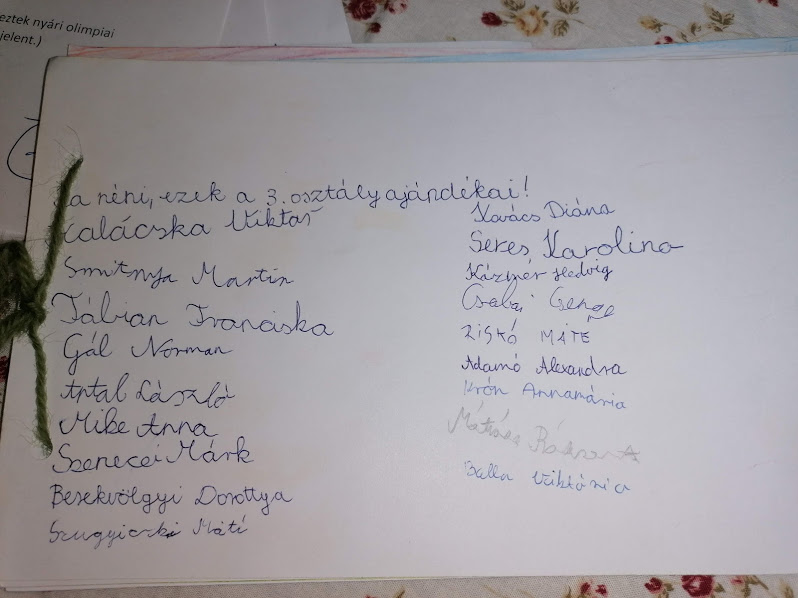 eztek nyári olimpiai
jelent.)
a néni, ezek a 3. osztály ajándékai!
Kalácska Viktor
Martin
Fábian Franciska
Gál Norman
Antal László
Mike Anna
Szenecei Márk
Berekvölgyi Dorottya
Máté
Kovács Diána
Seres Karolina
Kázmér Hedvig
Csabai Csenge
Ziskó MÁTÉ
Adamó Alexandra
Krón Annamária
Mátyás
Balla Viktória